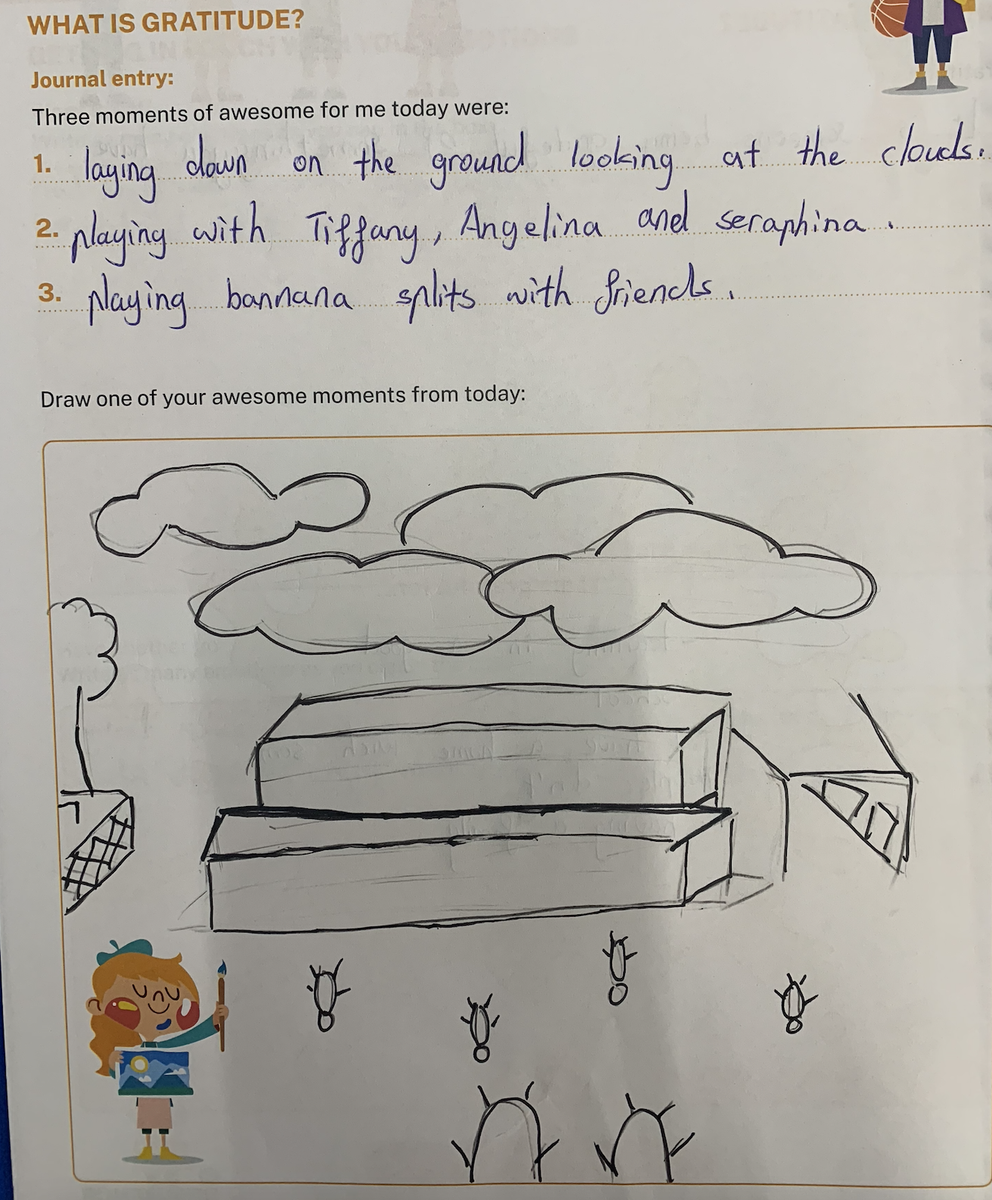 WHAT IS GRATITUDE?
Journal entry:
Three moments of awesome for me today were:
1. laying down on the ground looking at the clouds.
2. playing with Tiffany, Angelina and seraphina.
3. playing bannana splits with friends.
Draw one of your awesome moments from today: